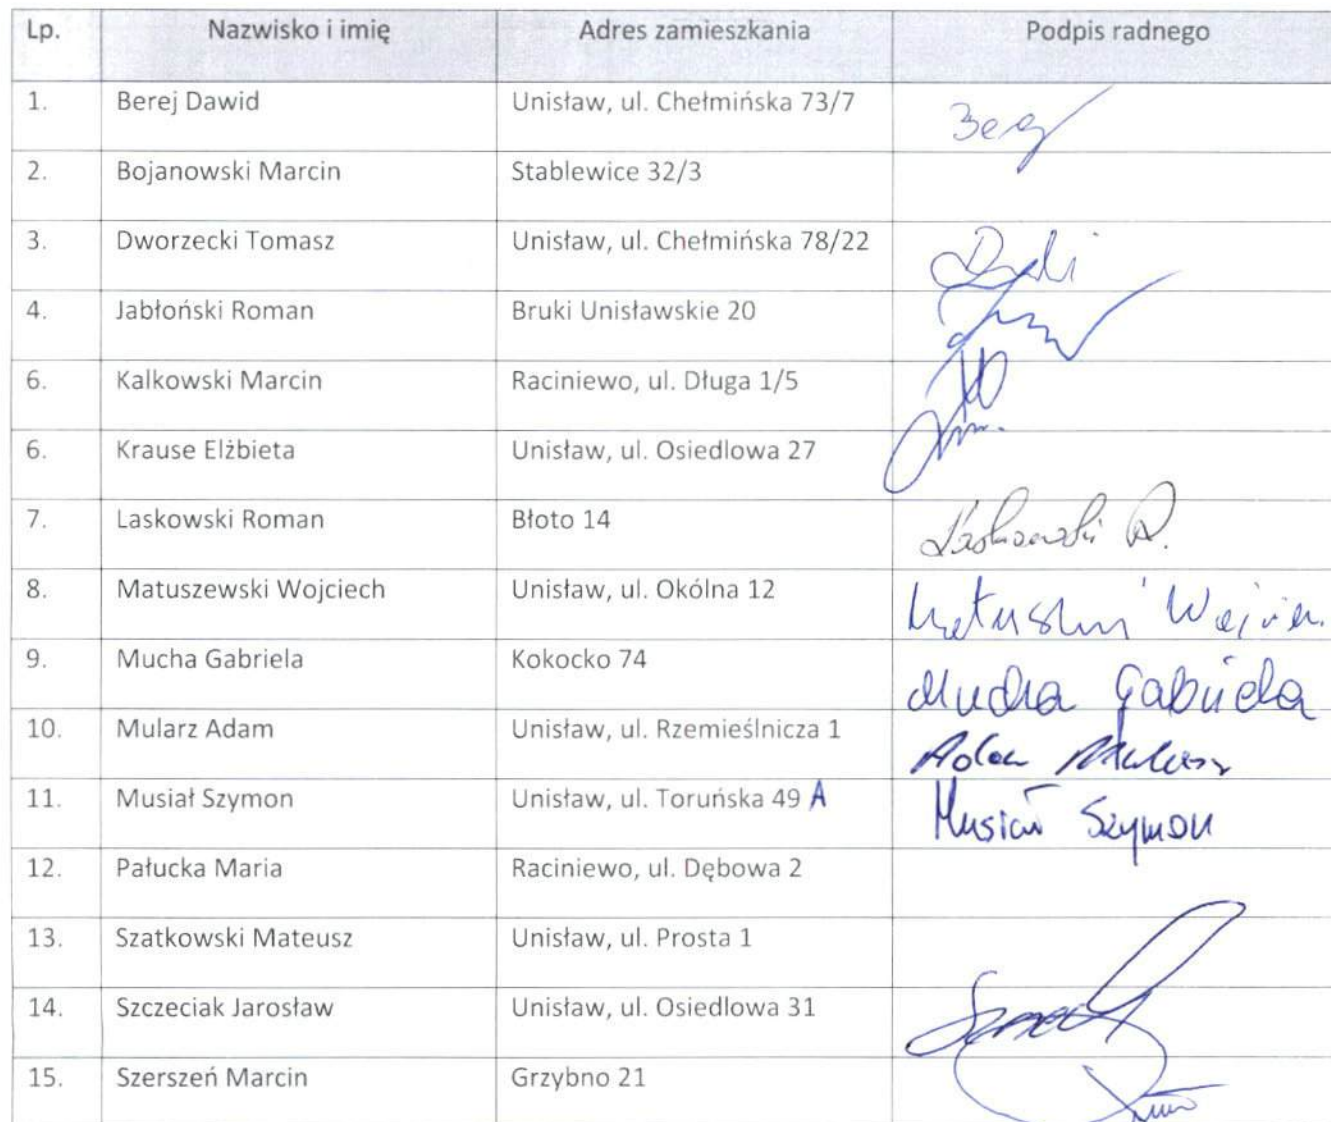 Lp. Nazwisko i imię Adres zamieszkania Podpis radnego
1. Berej Dawid Unisław, ul. Chełmińska 73/7
2. Bojanowski Marcin Stablewice 32/3
3. Dworzecki Tomasz Unisław, ul. Chełmińska 78/22
4. Jabłoński Roman Bruki Unisławskie 20
6. Kalkowski Marcin Raciniewo, ul. Długa 1/5
6. Krause Elżbieta Unisław, ul. Osiedlowa 27
7. Laskowski Roman Błoto 14 Laskowski R.
8. Matuszewski Wojciech Unisław, ul. Okólna 12
9. Mucha Gabriela Kokocko 74 Mucha Gabriela
10. Mularz Adam Unisław, ul. Rzemieślnicza 1 Adam Mularz
11. Musiał Szymon Unisław, ul. Toruńska 49 A Musiał Szymon
12. Pałucka Maria Raciniewo, ul. Dębowa 2
13. Szatkowski Mateusz Unisław, ul. Prosta 1
14. Szczeciak Jarosław Unisław, ul. Osiedlowa 31
15. Szerszeń Marcin Grzybno 21